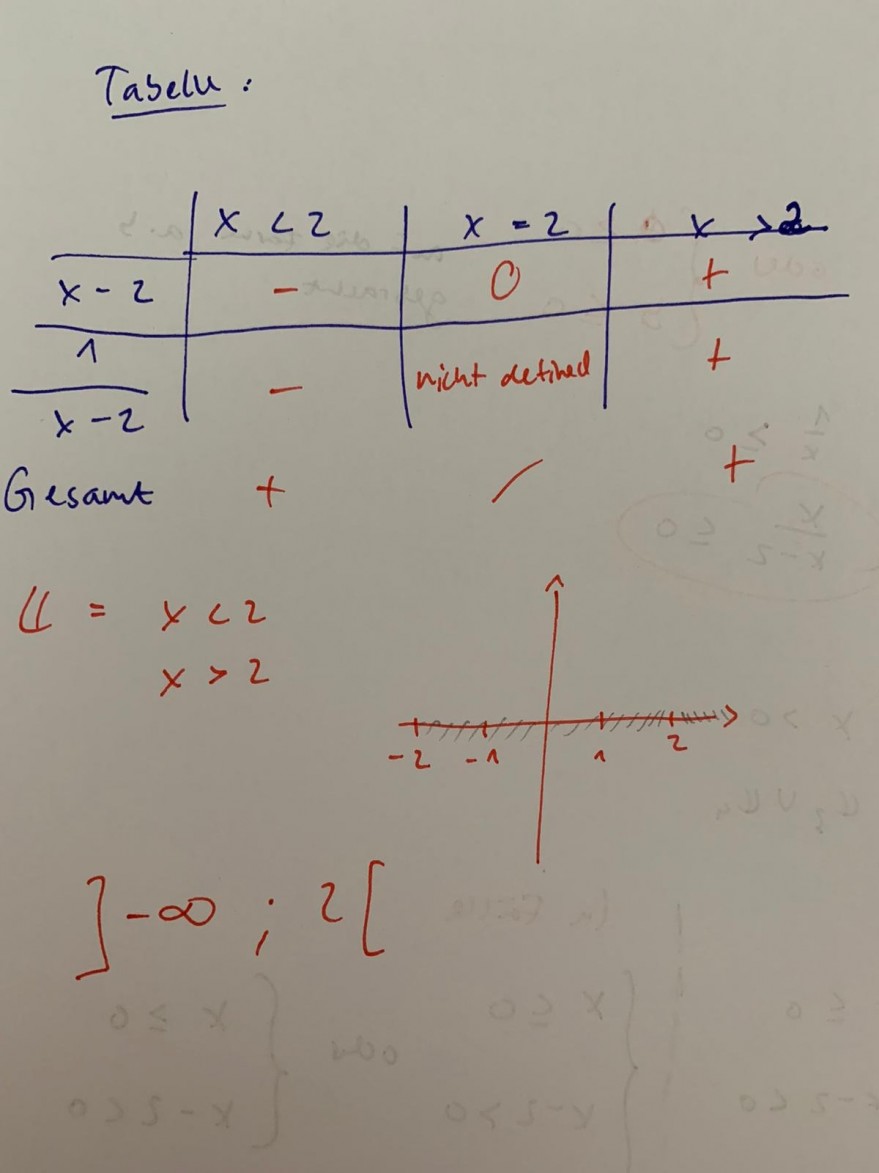 Tabelle:
x < 2 x = 2 x > 2
x - 2 - 0 +
1
x - 2
- nicht definied +
Gesamt + / +
𝕃 = x < 2
x > 2
-2 -1 1 2
]-∞ ; 2[